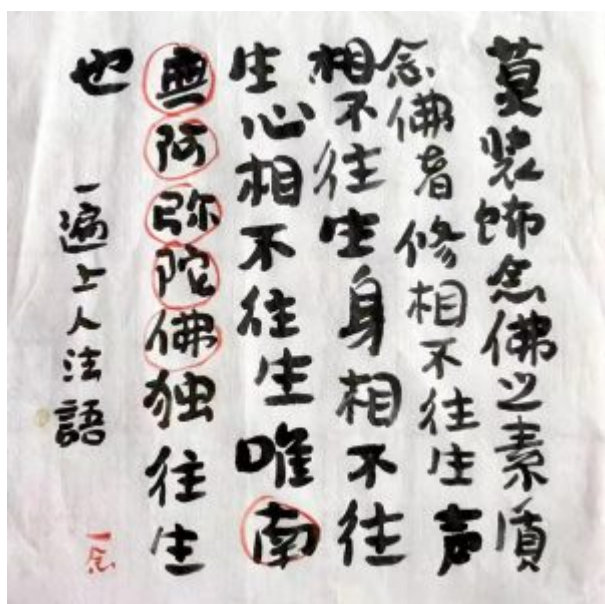 莫装饰念佛之素质
念佛者修相不往生声
相不往生身相不往
生心相不往生唯南
無阿弥陀佛独往生
也
一遍上人法語
一念